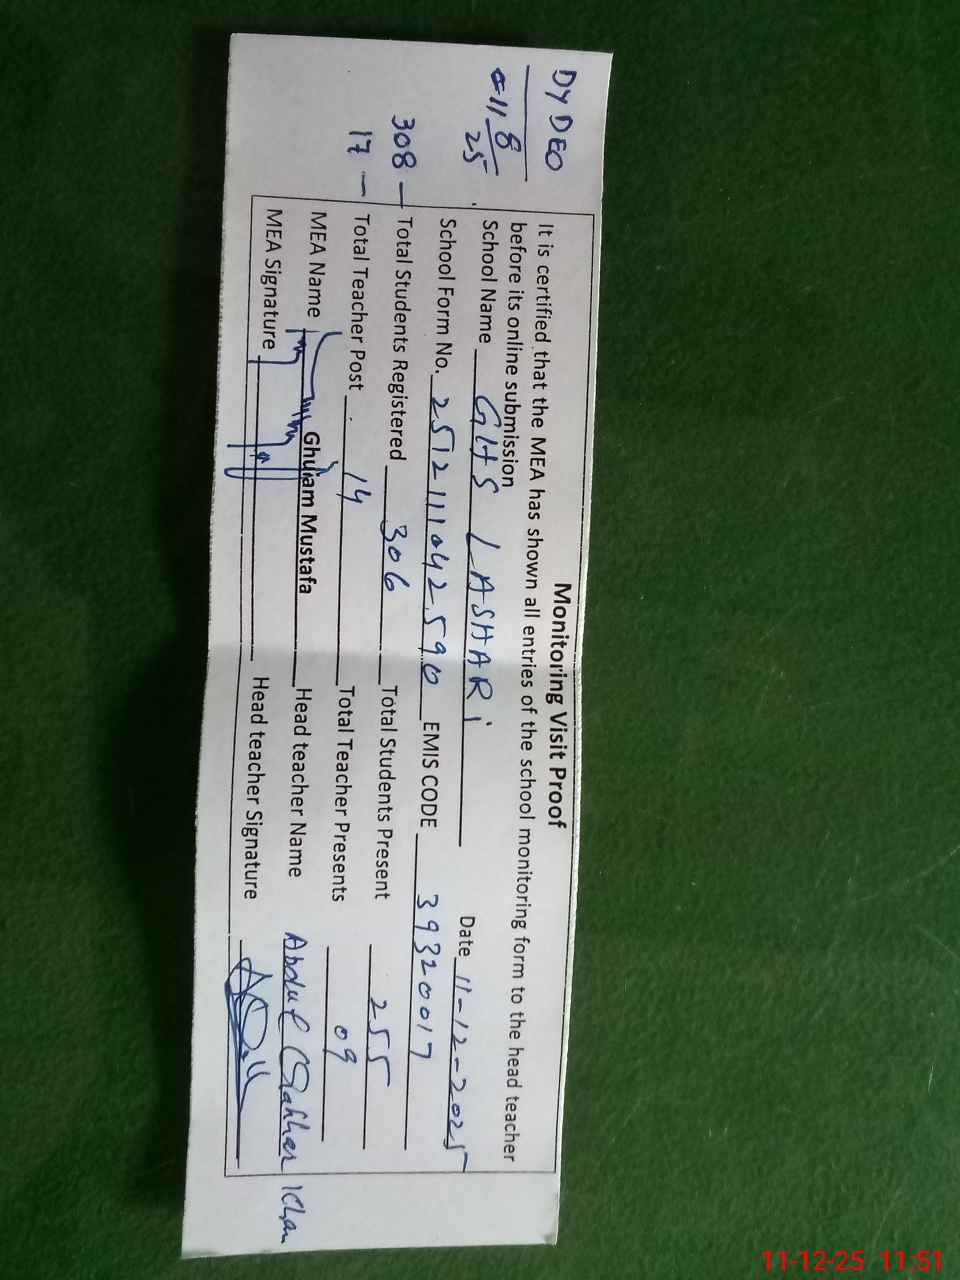 DY DEO
11 8/25
308 —
17 —
Monitoring Visit Proof
It is certified that the MEA has shown all entries of the school monitoring form to the head teacher
before its online submission
School Name GHS LASHARi Date 11-12-2025
School Form No. 251211042590 EMIS CODE 39320017
Total Students Registered 306 Total Students Present 255
Total Teacher Post 14 Total Teacher Presents 09
MEA Name Ghulam Mustafa Head teacher Name Abdul Ghaffar Khan
MEA Signature Head teacher Signature
11-12-25 11:51